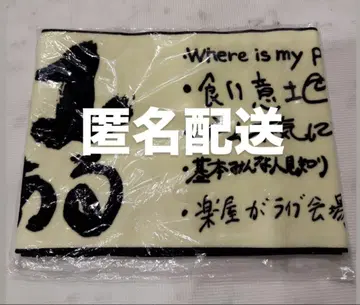 ・Where is my P
・食い意地
匿名配送
気に
・基本みんな人見知り
・楽屋がライブ会場